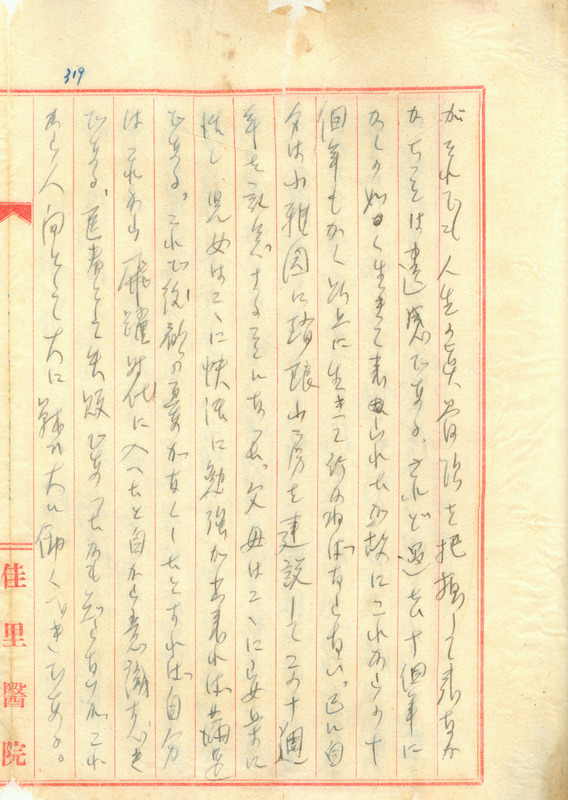 319
がそれでも人生の真骨頂を把握して来なか
かったのは遺憾である。されど過去十個年に
かくの如く生きて来られたが故にこれからの十
個年もかく以上に生きて行かねばならない。已に自
分は小雅園に琅琅山房を建設してこの十週
年を記念することになった。父母はここに安楽に
し、児女はここに快活に勉強が出来れば満足
である。これで後顧の憂がなくしたとすれば自分
はこれから飛躍時代に入ったと自から意識すべき
である。医者として失敗であったかも知らないがこれ
から人間として大に戦ひ大に働くべきである。
佳里醫院